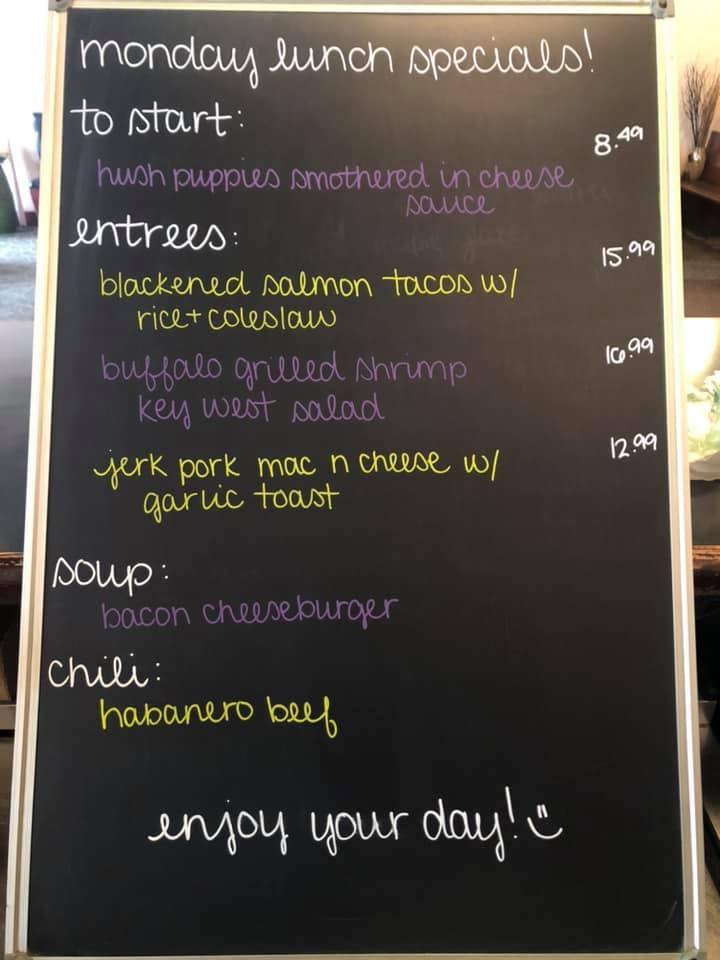 monday lunch specials!
to start:
8.49
hush puppies smothered in cheese
sauce
entrees:
15.99
blackened salmon tacos w/
rice + coleslaw
16.99
buffalo grilled shrimp
key west salad
12.99
jerk pork mac n cheese w/
garlic toast
soup:
bacon cheeseburger
chili:
habanero beef
enjoy your day!